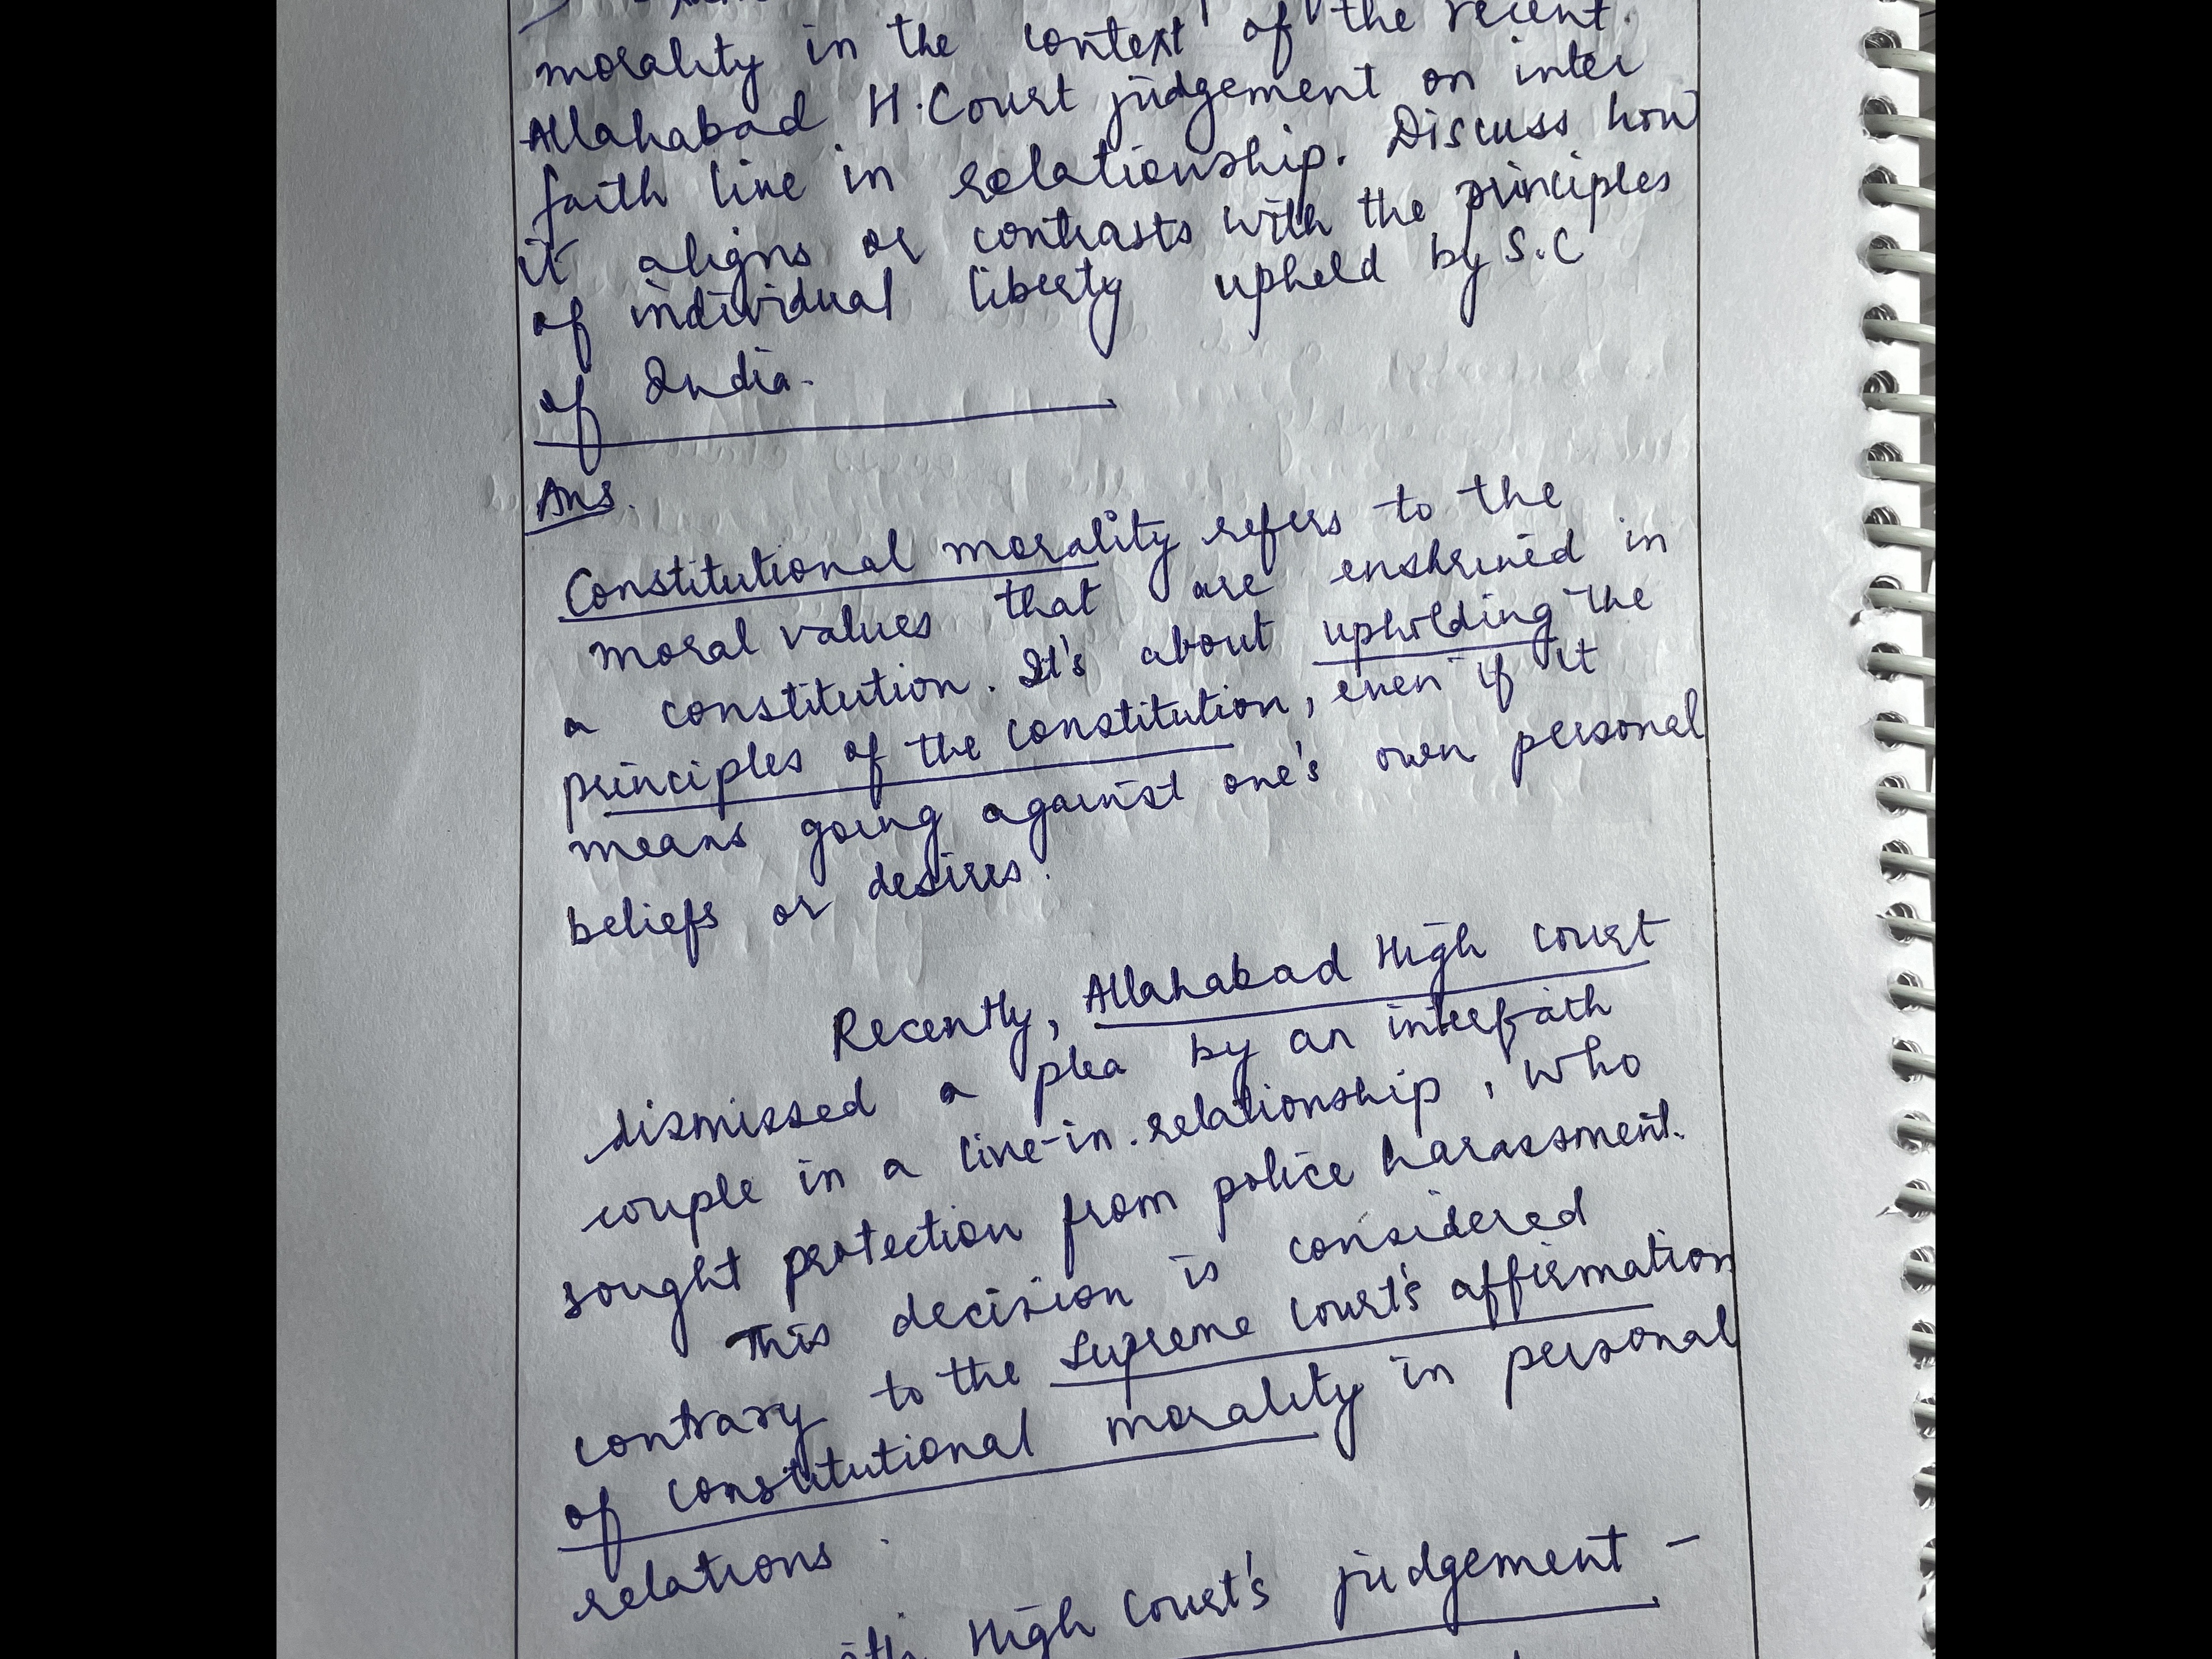 morality in the context of the recent
Allahabad H.Court judgement on inter
faith live in relationship. Discuss how
it aligns or contrasts with the principles
of individual liberty upheld by S.C
of India.
Ans.
Constitutional morality refers to the
moral values that are enshrined in
a constitution. It's about upholding the
principles of the constitution, even if it
means going against one's own personal
beliefs or desires.
Recently, Allahabad High Court
dismissed a plea by an interfaith
couple in a live-in relationship, who
sought protection from police harassment.
This decision is considered
contrary to the Supreme Court's affirmation
of constitutional morality in personal
relations.
High Court's judgement -